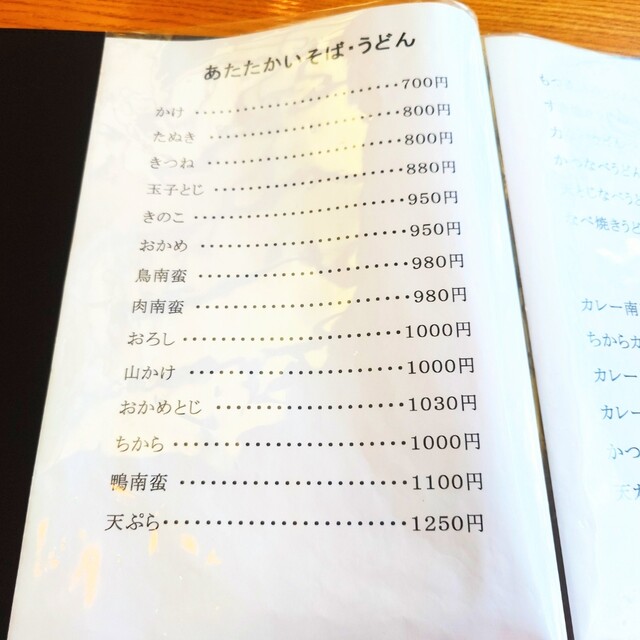 あたたかいそば・うどん
かけ・・・・・・・・・・・・・・・・・・・・・700円
たぬき・・・・・・・・・・・・・・・・・・・・800円
きつね・・・・・・・・・・・・・・・・・・・・800円
玉子とじ・・・・・・・・・・・・・・・・・・・880円
きのこ・・・・・・・・・・・・・・・・・・・・950円
おかめ・・・・・・・・・・・・・・・・・・・・950円
鳥南蛮・・・・・・・・・・・・・・・・・・・・980円
肉南蛮・・・・・・・・・・・・・・・・・・・・980円
おろし・・・・・・・・・・・・・・・・・・・・1000円
山かけ・・・・・・・・・・・・・・・・・・・・1000円
おかめとじ・・・・・・・・・・・・・・・・・・1030円
ちから・・・・・・・・・・・・・・・・・・・・1000円
鴨南蛮・・・・・・・・・・・・・・・・・・・・1100円
天ぷら・・・・・・・・・・・・・・・・・・・・1250円
かつなべうどん
なべ焼きうど
カレー南
ちからカ
カレー
カレー
かつ